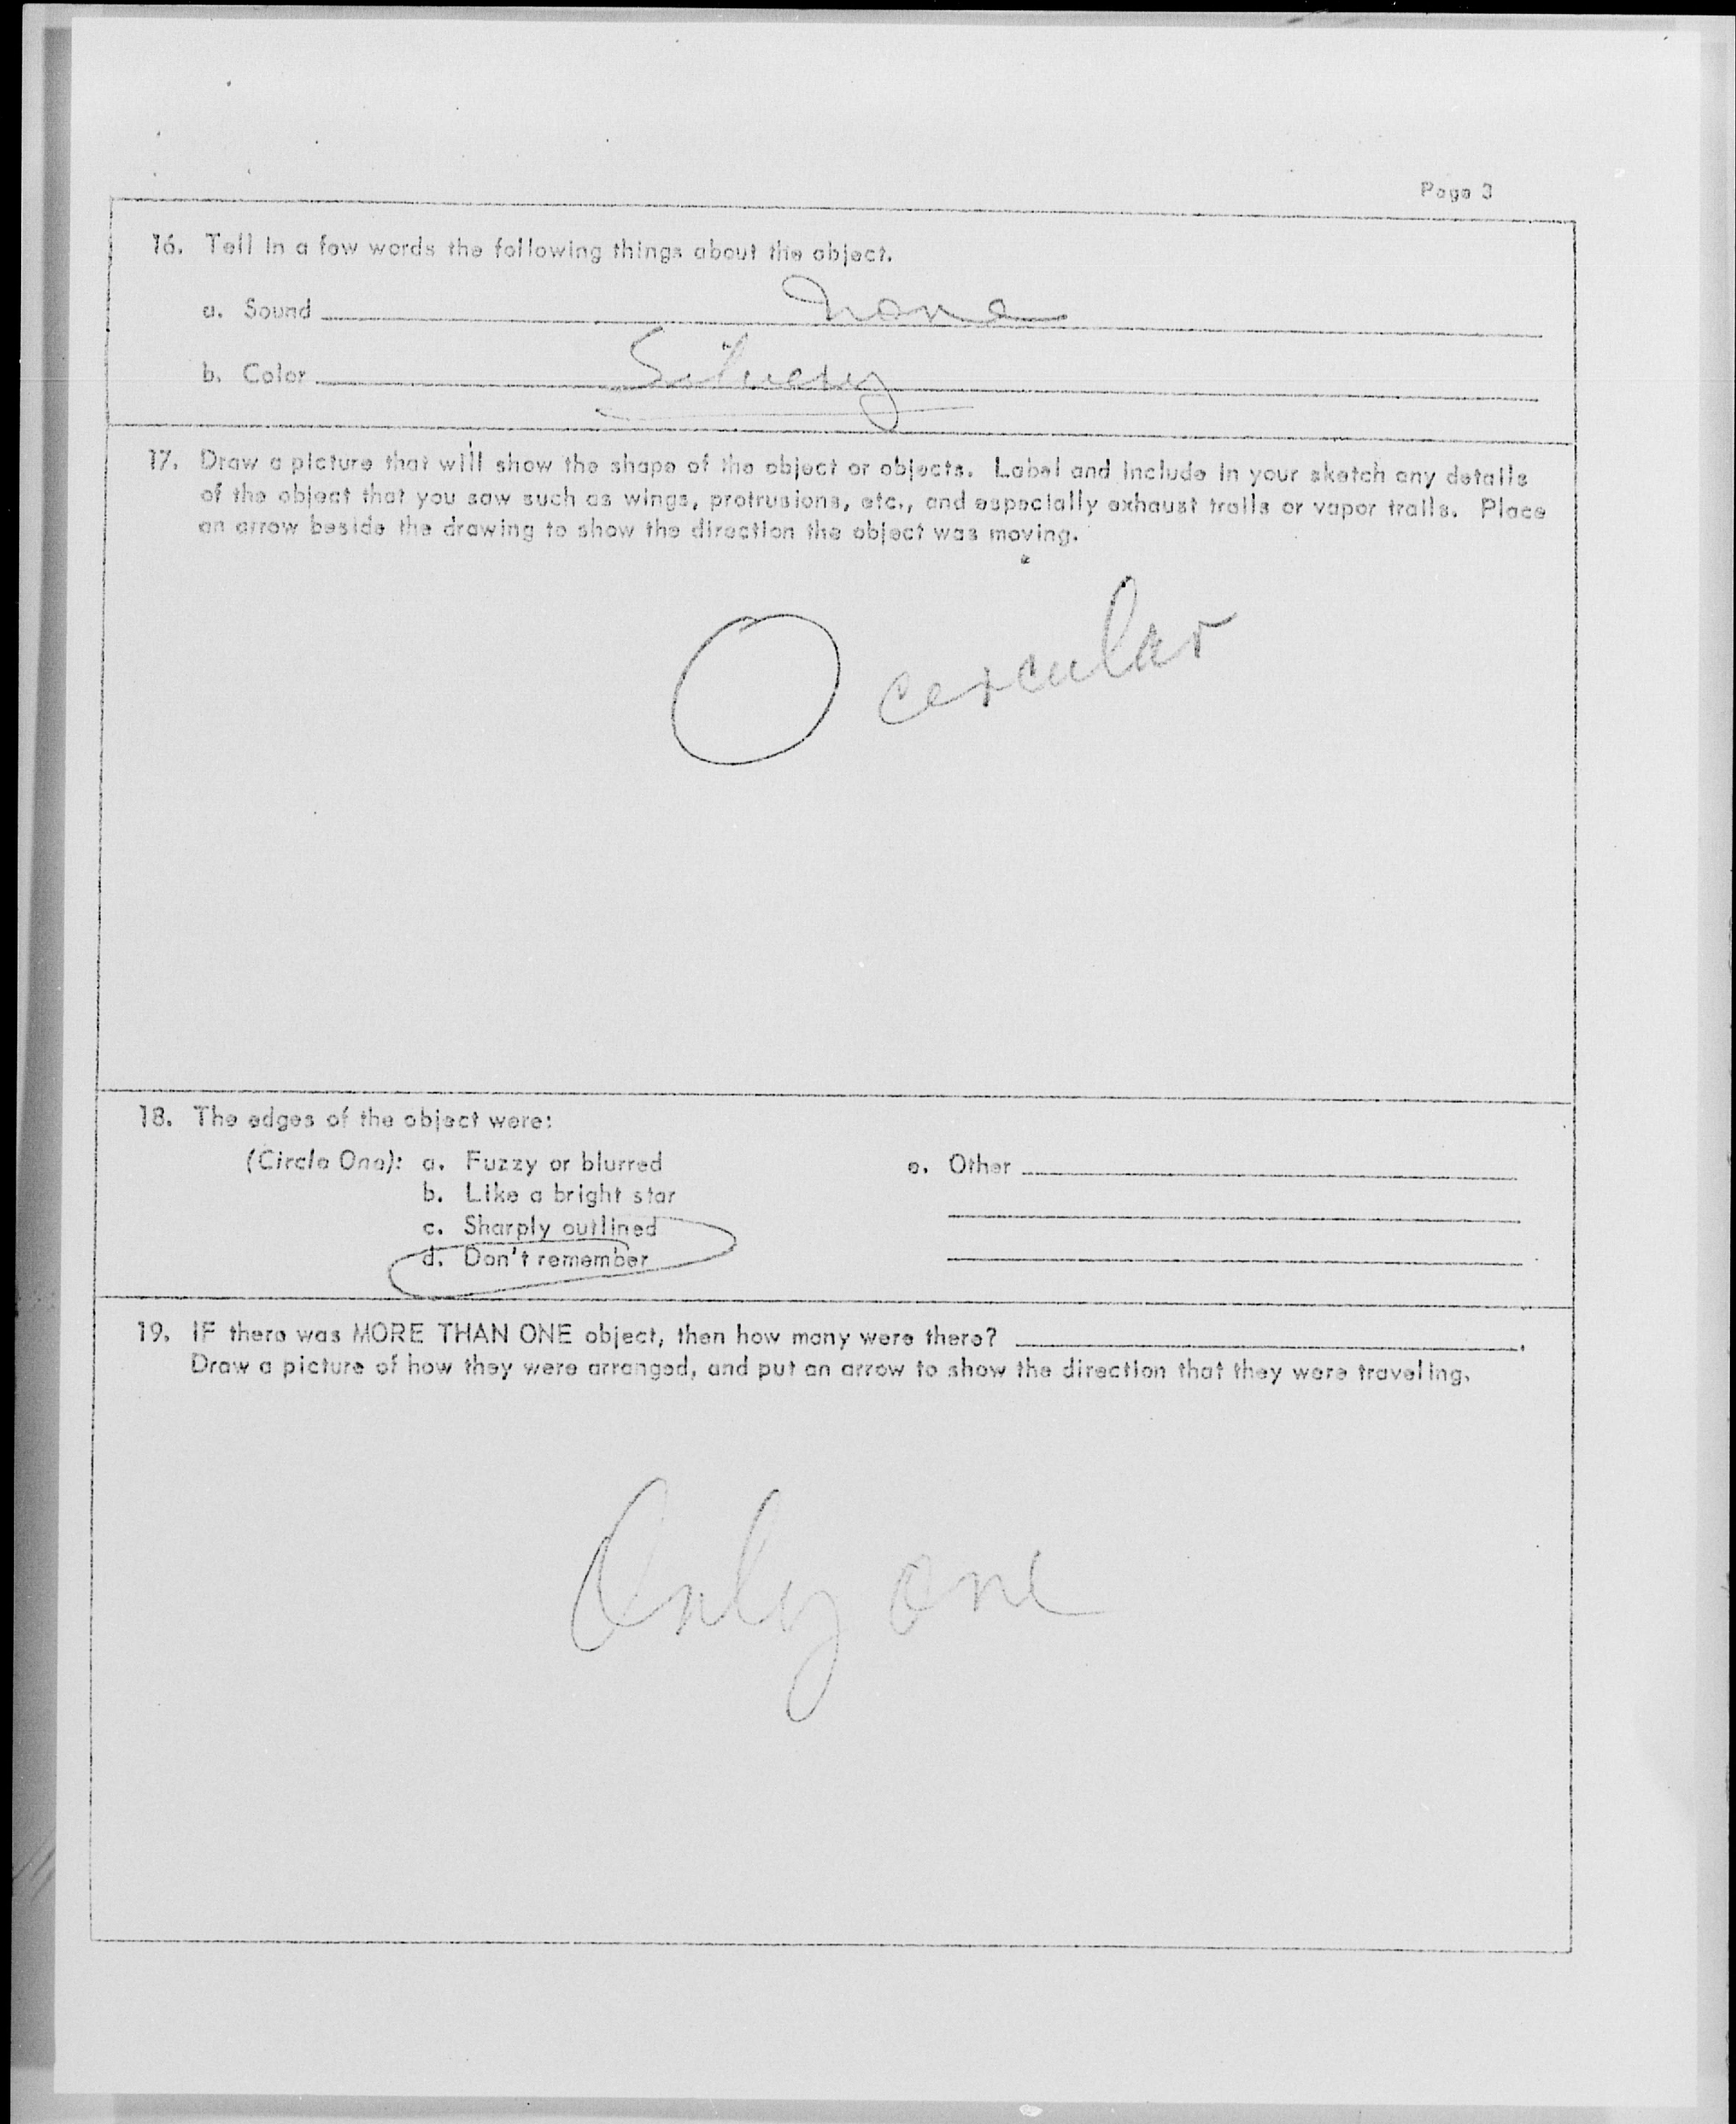 Page 3
16. Tell in a few words the following things about the object.
a. Sound none
b. Color Silvery
17. Draw a picture that will show the shape of the object or objects. Label and include in your sketch any details
of the object that you saw such as wings, protrusions, etc., and especially exhaust trails or vapor trails. Place
an arrow beside the drawing to show the direction the object was moving.
circular
18. The edges of the object were:
(Circle One): a. Fuzzy or blurred e. Other
b. Like a bright star
c. Sharply outlined
d. Don't remember
19. IF there was MORE THAN ONE object, then how many were there?
Draw a picture of how they were arranged, and put an arrow to show the direction that they were traveling.
Only one